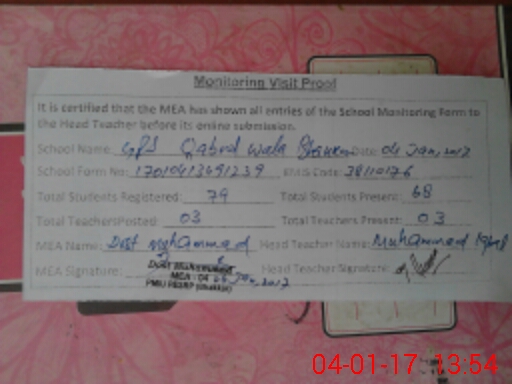 Monitoring Visit Proof
It is certified that the MEA has shown all entries of the School Monitoring Form to
the Head Teacher before its online submission.
School Name: GPS Qabool Wala Date: 04 Jan, 2017
School Form No: EMIS Code: 38110176
Total Students Registered: 79 Total Students Present: 68
Total Teachers Posted: 03 Total Teachers Present: 03
MEA Name: Dost Muhammad Head Teacher Name: Muhammad Iqbal
MEA Signature: Head Teacher Signature:
Dost Muhammad
MEA - 04
04-01-17 13:54